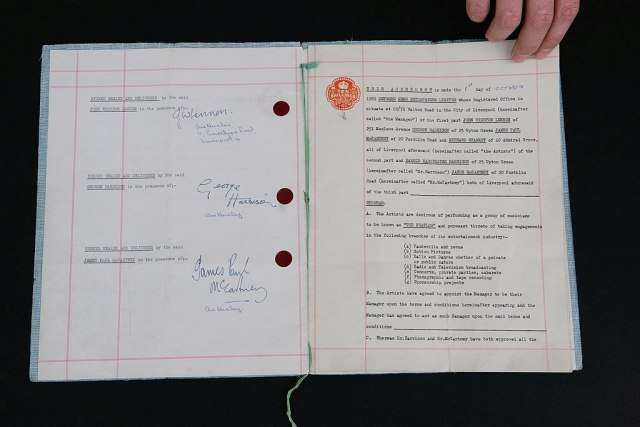 SIGNED SEALED AND DELIVERED by the said
JOHN WINSTON LENNON in the presence of:-
JWLennon.
SIGNED SEALED AND DELIVERED by the said
GEORGE HARRISON in the presence of:-
George
Harrison
SIGNED SEALED AND DELIVERED by the said
JAMES PAUL McCARTNEY in the presence of:-
James Paul
McCartney
TEN
SHILLINGS
THIS AGREEMENT is made the 1st day of OCTOBER
1962 BETWEEN NEMS ENTERPRISES LIMITED whose Registered Office is
situate at 70/72 Walton Road in the City of Liverpool (hereinafter
called "the Manager") of the first part JOHN WINSTON LENNON of
251 Menlove Avenue GEORGE HARRISON of 25 Upton Green JAMES PAUL
McCARTNEY of 20 Forthlin Road and RICHARD STARKEY of 10 Admiral Grove,
all of Liverpool aforesaid (hereinafter called "the Artists") of the
second part and HAROLD HARGREAVES HARRISON of 25 Upton Green
(hereinafter called "Mr.Harrison") JAMES McCARTNEY of 20 Forthlin
Road (hereinafter called "Mr.McCartney") both of Liverpool aforesaid
of the third part
WHEREAS:
A. The Artists are desirous of performing as a group of musicians
to be known as "THE BEATLES" and pursuant thereto of taking engagements
in the following branches of the entertainment industry:-
(a) Vaudeville and revue
(b) Motion Pictures
(c) Balls and Dances whether of a private
or public nature
(d) Radio and Television broadcasting
(e) Concerts, private parties, cabarets
(f) Phonographic and tape recording
(g) Sponsorship projects
B. The Artists have agreed to appoint the Manager to be their
Manager upon the terms and conditions hereinafter appearing and the
Manager has agreed to act as such Manager upon the said terms and
conditions
C. Whereas Mr.Harrison and Mr.McCartney have both approved all the